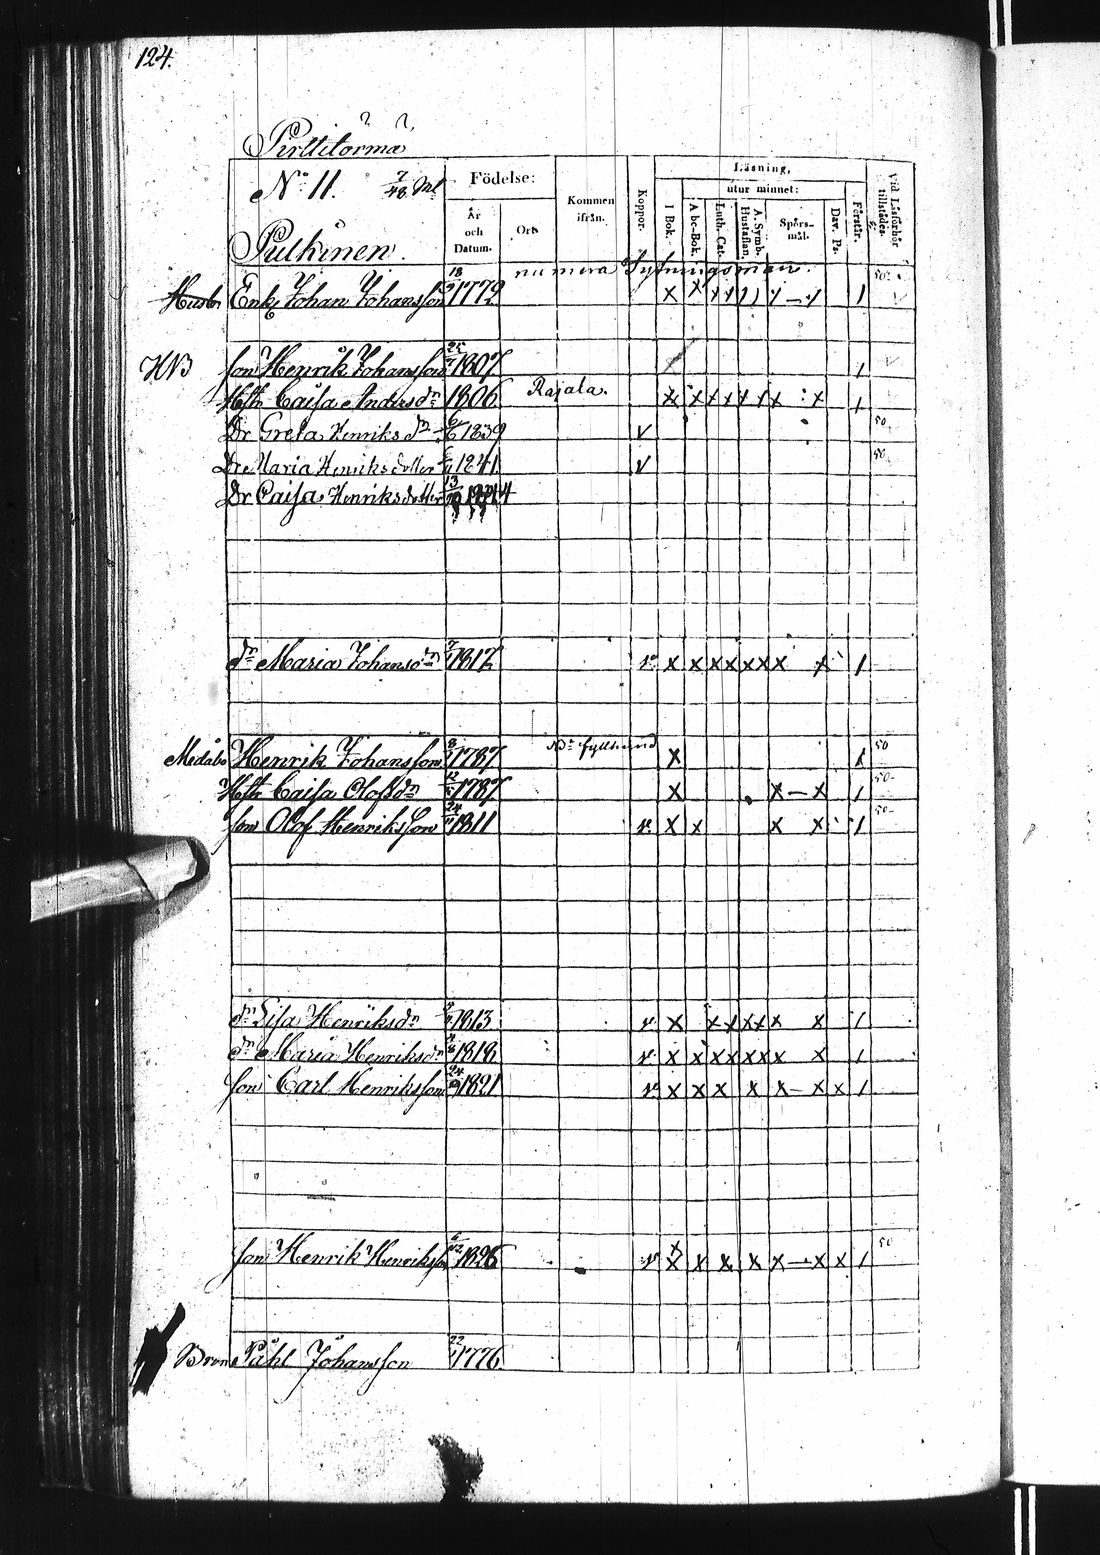 124.
Pirttitorma
No 11. 7/48 Ml
Pulkinen.
Födelse:
År och Datum.
Ort.
Kommen ifrån.
Koppor.
Läsning,
utur minnet:
I Bok.
Abc-Bok.
Luth. Cat.
A. Symb. Hustaflan.
Spörs-mål.
Dav. Ps.
Förstår.
Vid Läsförhör tillstädes.
numera Sytningsman.
Husb Enkl Johan Johansson 1772 x x x x 1
HB son Henrik Johansson 25 1807. 1
Hstr Caisa Andersdn 1806 Rajala. x x x x x x x x 1
Dr Greta Henriksdn 1839 v 50
Dr Maria Henriksdotter 1841 v 50
Dr Caisa Henriksdotter 13 1844
dn Maria Johansdn 7 1817 v. x x x x x x x x 1
Medåbo Henrik Johansson 8 1787 x 1 50
Hstr Caisa Olofsdn 1787 x x - x 1 50
son Olof Henriksson 24 1811 v. x x x x 1 50
dn Lisa Henriksdn 1813 v x x x x x x x 1
dn Maria Henriksdn 1818 v. x x x x x x x x 1
son Carl Henriksson 24 1821 v. x x x x x - x x 1
son Henrik Henriksson 1826 v x x x x x x - x x 1 50
Bron Påhl Johansson 22 1776